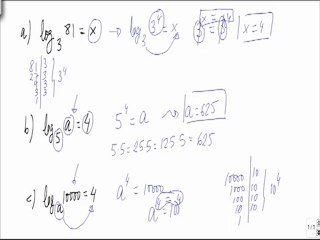 a) log₃ 81 = x → log₃ 3⁴ = x 3ˣ = 3⁴ x = 4
81 | 3
27 | 3
9 | 3
3 | 3
1 | 3⁴
b) log₅ a = 4 5⁴ = a → a = 625
5·5 = 25·5 = 125·5 = 625
c) log_a 10000 = 4 a⁴ = 10000
a⁴ = 10⁴
10000 | 10
1000 | 10
100 | 10
10 | 10
1 | 10⁴
1/1